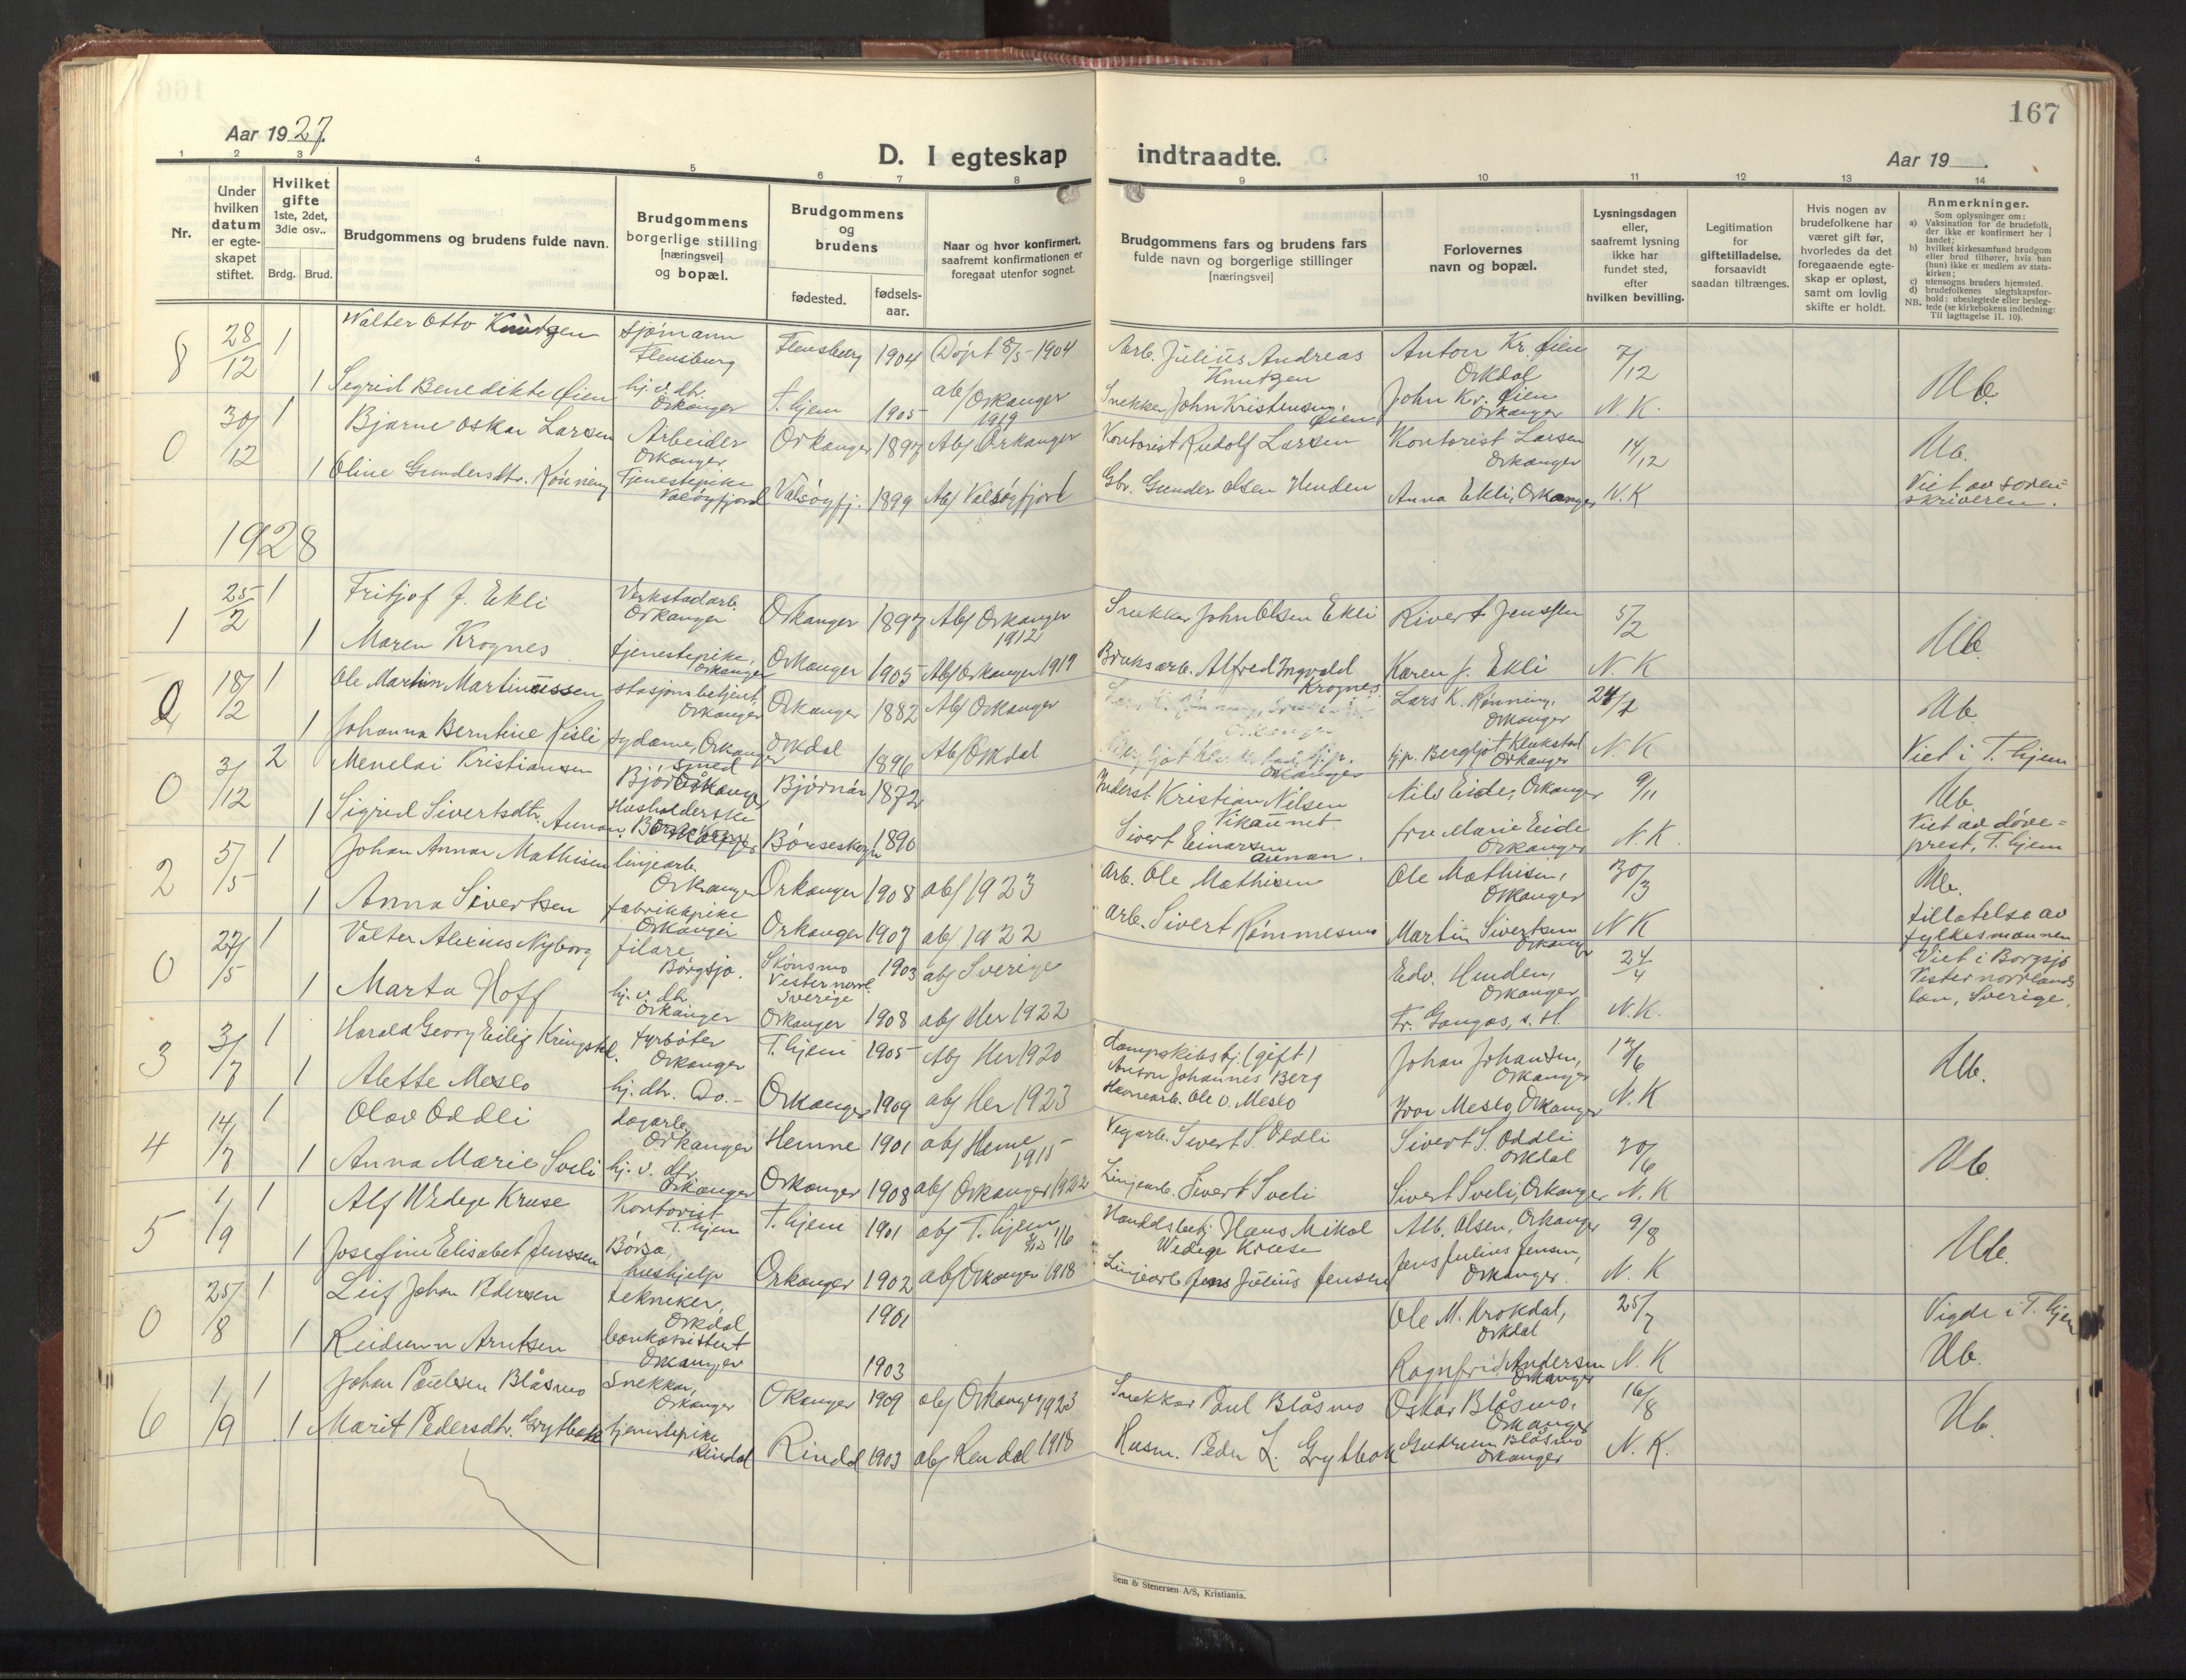 167
Aar 1927.
D. I egteskap indtraadte.
Aar 19
1 2 3 4 5 6 7 8 9 10 11 12 13 14
Nr.
Under hvilken datum er egteskapet stiftet.
Hvilket gifte 1ste, 2det, 3die osv..
Brdg. Brud.
Brudgommens og brudens fulde navn.
Brudgommens borgerlige stilling [næringsvei] og bopæl.
Brudgommens og brudens
fødested.
fødselsaar.
Naar og hvor konfirmert, saafremt konfirmationen er foregaat utenfor sognet.
Brudgommens fars og brudens fars fulde navn og borgerlige stillinger [næringsvei]
Forlovernes navn og bopæl.
Lysningsdagen eller, saafremt lysning ikke har fundet sted, efter hvilken bevilling.
Legitimation for giftetilladelse. forsaavidt saadan tiltrænges.
Hvis nogen av brudefolkene har været gift før, hvorledes da det foregaaende egteskap er opløst, samt om lovlig skifte er holdt.
Anmerkninger.
Som oplysninger om:
a) Vaksination for de brudefolk, der ikke er konfirmert her i landet;
b) hvilket kirkesamfund brudgom eller brud tilhører, hvis han (hun) ikke er medlem av statskirken;
c) utensogns bruders hjemsted.
d) brudefolkenes slegtskapsforhold: ubeslegtede eller beslegtede (se kirkebokens indledning: NB. Til Iagttagelse II. 10).
8 28/12 1 Walter Otto Knutzen sjømann Flensburg Flensburg 1904 Døpt 8/5-1904 Arb. Julius Andreas Knutzen Anton Kr. Øien Orkdal 7/12 Ub.
1 Segrid Benedikte Øien hj.v. dtr. Orkanger T.hjem 1905 abf Orkanger 1919 Snekker John Kristensen Øien John Kr. Øien Orkanger N.K.
0 30/12 1 Bjarne Oskar Larsen Arbeider Orkanger Orkanger 1897 Abf Orkanger Kontorist Rudolf Larsen Kontorist Larsen Orkanger 14/12 Ub.
1 Oline Gundersdtr. Rønning Tjenestepike Valsøyfjord Valsøyfj. 1899 Abf Valsøyfjord Gbr. Gunder Olsen Henden Anna Ekli, Orkanger N.K Viet av sorenskriveren.
1928
1 25/2 1 Fritjof J. Ekli Verkstadarb. Orkanger Orkanger 1897 Abf Orkanger 1912 Snekker John Olsen Ekli Rivert Jenssen 5/2 Ub.
1 Maren Krognes tjenestepike, Orkanger Orkanger 1905 Abf Orkanger 1919 Bruksarb. Alfred Ingvald Krognes Karen J. Ekli N.K
0 18/2 1 Ole Martin Martinussen stasjonsbetjent, Orkanger Orkanger 1882 Abf Orkanger Lars K. Rønning, Orkanger 24/1 Ub.
1 Johanna Berntine Risli sydame, Orkanger Orkdal 1896 Abf Orkdal hjp. Bergljot Klukstad Orkanger N.K Viet i T.hjem
0 3/12 2 Menelai Kristiansen smed Orkanger Bjørnør 1872 Inderst Kristian Nilsen Vikaunet Nils Eide, Orkanger 9/11 Ub.
1 Sigrid Sivertsdtr. Aunan Husholderske Orkanger Børseskogn 1890 Sivert Einarsen Aunan. fru Marie Eide Orkanger N.K. Viet av døveprest, T.hjem
2 5/5 1 Johan Annar Mathisen linjearb. Orkanger Orkanger 1908 abf 1923 Arb. Ole Mathisen Ole Mathisen, Orkanger 30/3 Ub.
1 Anna Sivertsen fabrikkpike Orkanger Orkanger 1907 abf 1922 arb. Sivert Rømmesmo Martin Sivertsen Orkanger N K tillatelse av fylkesmannen
0 27/5 1 Valter Alexius Nyborg filare, Borgsjø. Skönsmo Vesternorrl. Sverige 1903 abf Sverige Edv. Henden, Orkanger 24/4 Viet i Borgsjø Vesternorrlands län, Sverige.
1 Marta Hoff hj.v. dtr. Orkanger Orkanger 1908 abf Her 1922 Fr. Gangås, s. st. N.K.
3 3/7 1 Harald Georg Eilif Kringstad. fyrbøter Orkanger T.hjem 1905 Abf Her 1920 dampskibsbj. (gift) Anton Johannes Berg Johan Johansen, Orkanger 17/6 Ub.
1 Alette Meslo hj. dtr. Do.- Orkanger 1909 abf Her 1923 Havnearb. Ole O. Meslo Ivar Meslo Orkanger N.K
4 14/7 1 Olav Oddli dagarb. Orkanger Hemne 1901 abf Hemne 1915 Vegarb. Sivert S. Oddli Sivert S. Oddli Orkdal 30/6 Ub.
1 Anna Marie Sveli hj. v. dtr. Orkanger Orkanger 1908 abf Orkanger 1922 Linjearb. Sivert Sveli Sivert Sveli, Orkanger N.K
5 1/9 1 Alf Wedege Kruse Kontorist T.hjem T.hjem 1901 abf T.hjem 3/12 16 Handelsbetj. Hans Mikal Wedege Kruse Alb. Olsen, Orkanger 9/8 Ub.
1 Josefine Elisabet Jenssen Børsa, hushjelp Orkanger 1902 abf Orkanger 1918 Linjearb. Jens Julius Jensen Jens Julius Jensen, Orkanger. N.K
0 25/8 1 Leif Johan Pedersen tekniker, Orkdal 1901 Ole M. Krokdal, Orkdal 25/7 Vigde i T.hjem
1 Reidunn Arntsen bankassistent Orkanger 1903 Ragnfrid Andersen Orkanger N.K Ub.
6 1/9 1 Johan Paulsen Blåsmo snekker, Orkanger Okanger 1909 abf Orkanger 1923 Snekker Paul Blåsmo Oskar Blåsmo, Orkanger 16/8 Ub.
1 Marit Pedersdtr. Grytbakk tjenestepike Rindal Rindal 1903 abf Rendal 1918 Husm. Peder L. Grytbak Gudrunn Blåsmo Orkanger N.K.
Sem & Stenersen A/S, Kristiania.